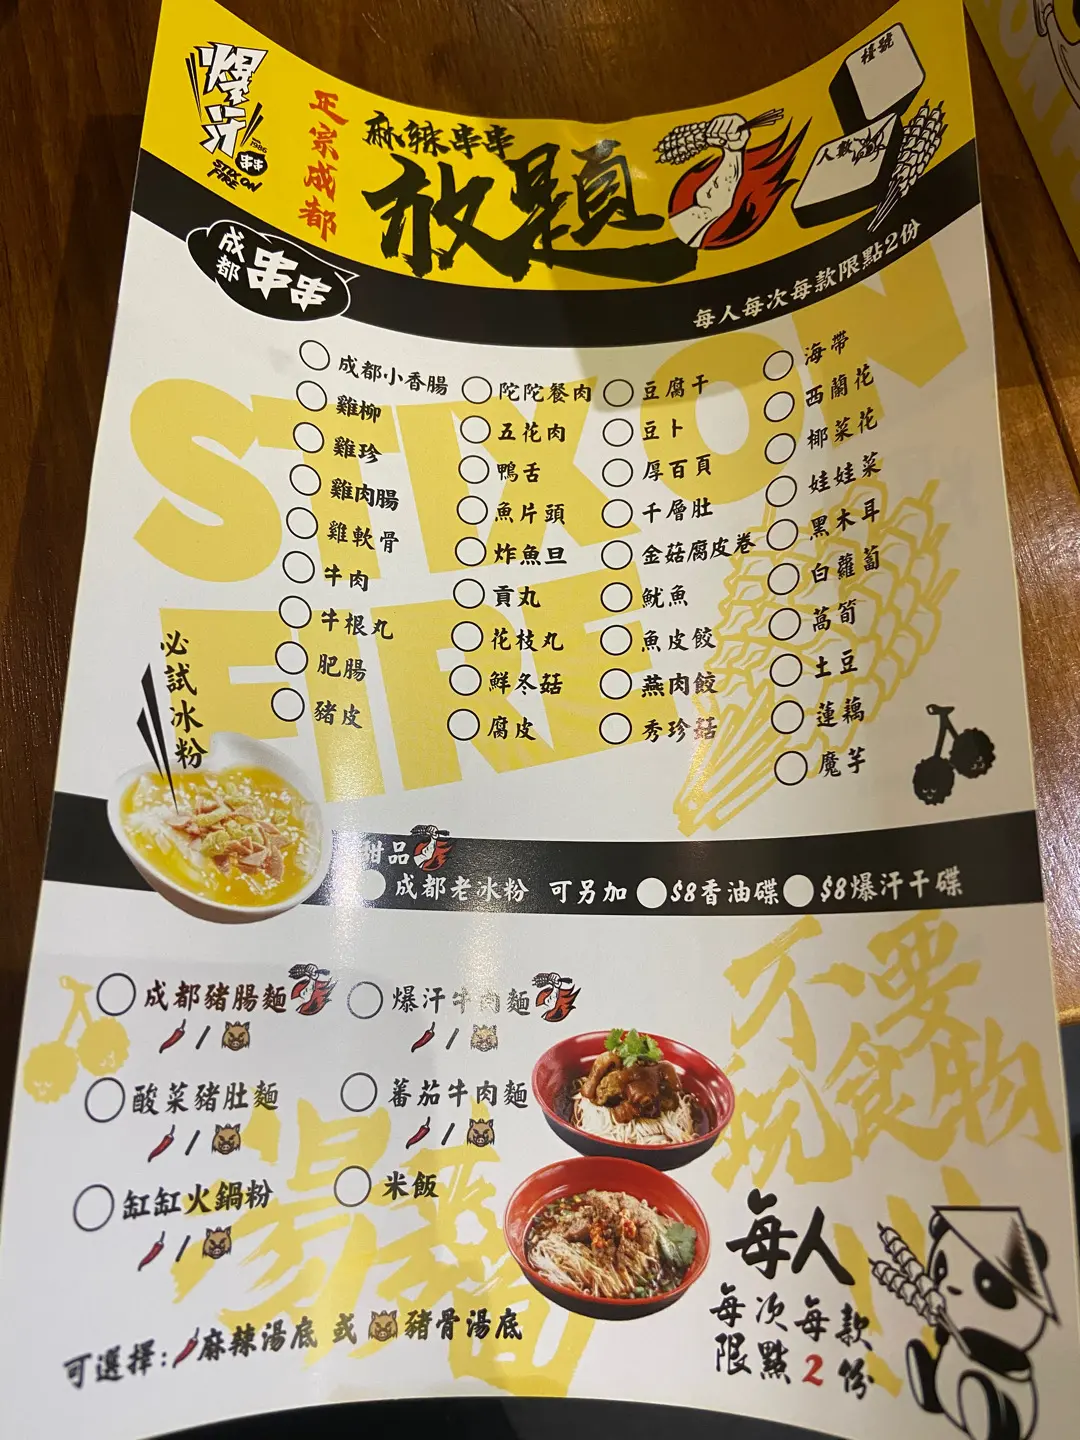 爆汁
1986
串串
STIX ON FIRE
正宗成都
麻辣串串
放題
檯號
人數
成都串串
每人每次每款限點2份
STIX ON
FIRE
成都小香腸
雞柳
雞珍
雞肉腸
雞軟骨
牛肉
牛根丸
肥腸
豬皮
陀陀餐肉
五花肉
鴨舌
魚片頭
炸魚旦
貢丸
花枝丸
鮮冬菇
腐皮
豆腐干
豆卜
厚百頁
千層肚
金菇腐皮卷
魷魚
魚皮餃
燕肉餃
秀珍菇
海帶
西蘭花
椰菜花
娃娃菜
黑木耳
白蘿蔔
萵筍
土豆
蓮藕
魔芋
必試冰粉
甜品
成都老冰粉 可另加 $8香油碟 $8爆汗干碟
成都豬腸麵
/
爆汗牛肉麵
/
酸菜豬肚麵
/
蕃茄牛肉麵
/
缸缸火鍋粉
/
米飯
湯麵
可選擇:麻辣湯底 或 豬骨湯底
不要
玩食物
每人
每次每款
限點2份